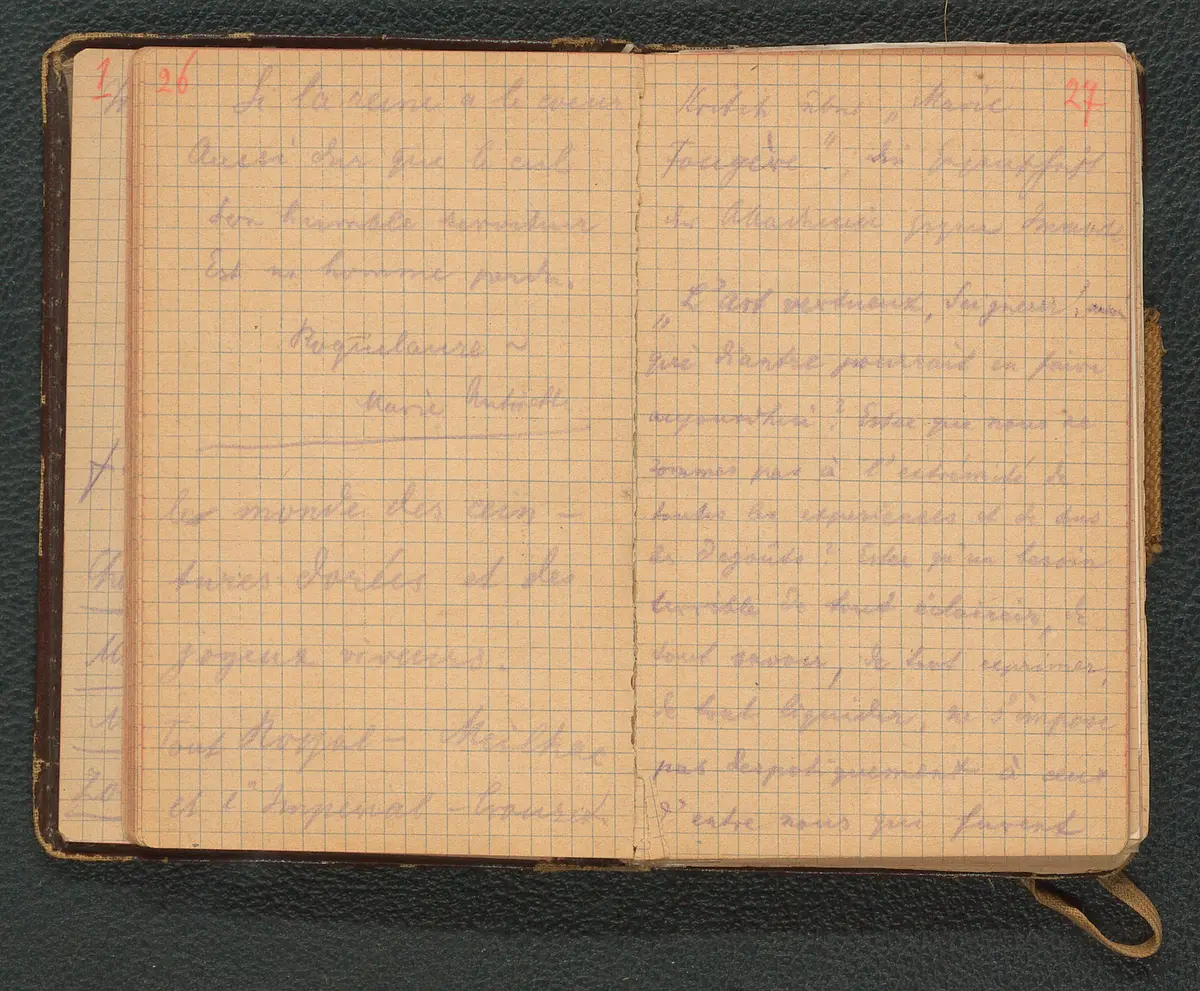 1
26
Si la reine a le coeur
Aussi dur que le cul
Son humble serviteur
Est un homme perdu.
Roquelaure –
Marie Antoinette
les monde des cein –
tures dorées et des
joyeux viveurs.
Tout Royal – Meilhac
et l' Imperial –
27
Kritik über „ Marie
Fougère"; die
der Akademie gegen
„ L'art vertueux, Seigneur!
què diantre pourrait en faire
aujourdhui? Estce que nous ne
sommes pas à l'extrémité de
toutes les experiences et de tous
les Degoûts? Estce qu'un besoin
terrible de tout éclaircir, de
tout savoir, de tout exprimer,
de tout liquider, ne s'impose
pas despotiquement à ceux
d'entre nous qui furent